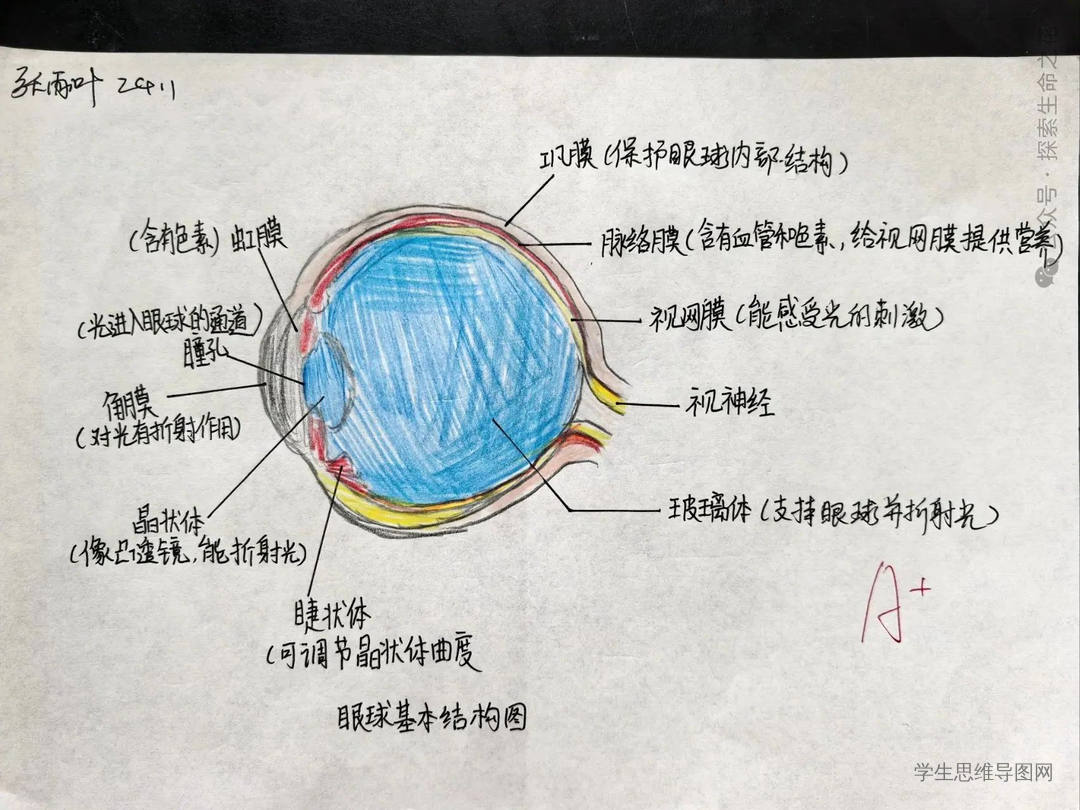 张雨叶 2411
公众号·探索生命之
巩膜(保护眼球内部结构)
(含有色素)虹膜
脉络膜(含有血管和色素,给视网膜提供营养)
(光进入眼球的通道)
瞳孔
视网膜(能感受光的刺激)
角膜
(对光有折射作用)
视神经
晶状体
(像凸透镜,能折射光)
玻璃体(支持眼球并折射光)
A+
睫状体
(可调节晶状体曲度
眼球基本结构图
学生思维导图网